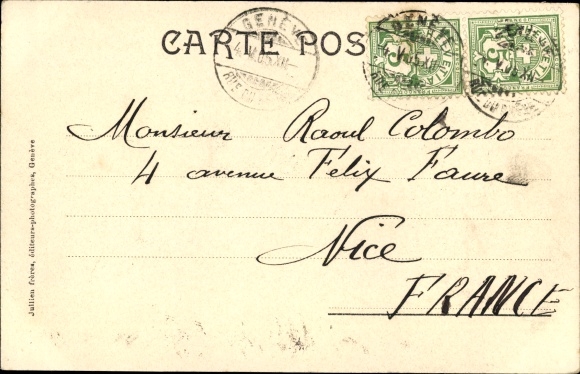 CARTE POS
GENÈV
4.V.05.XII
HELVETIA
5
5
Monsieur Raoul Colombo
4 avenue Félix Faure
Nice
FRANCE
Jullien frères, éditeurs-photographes, Genève